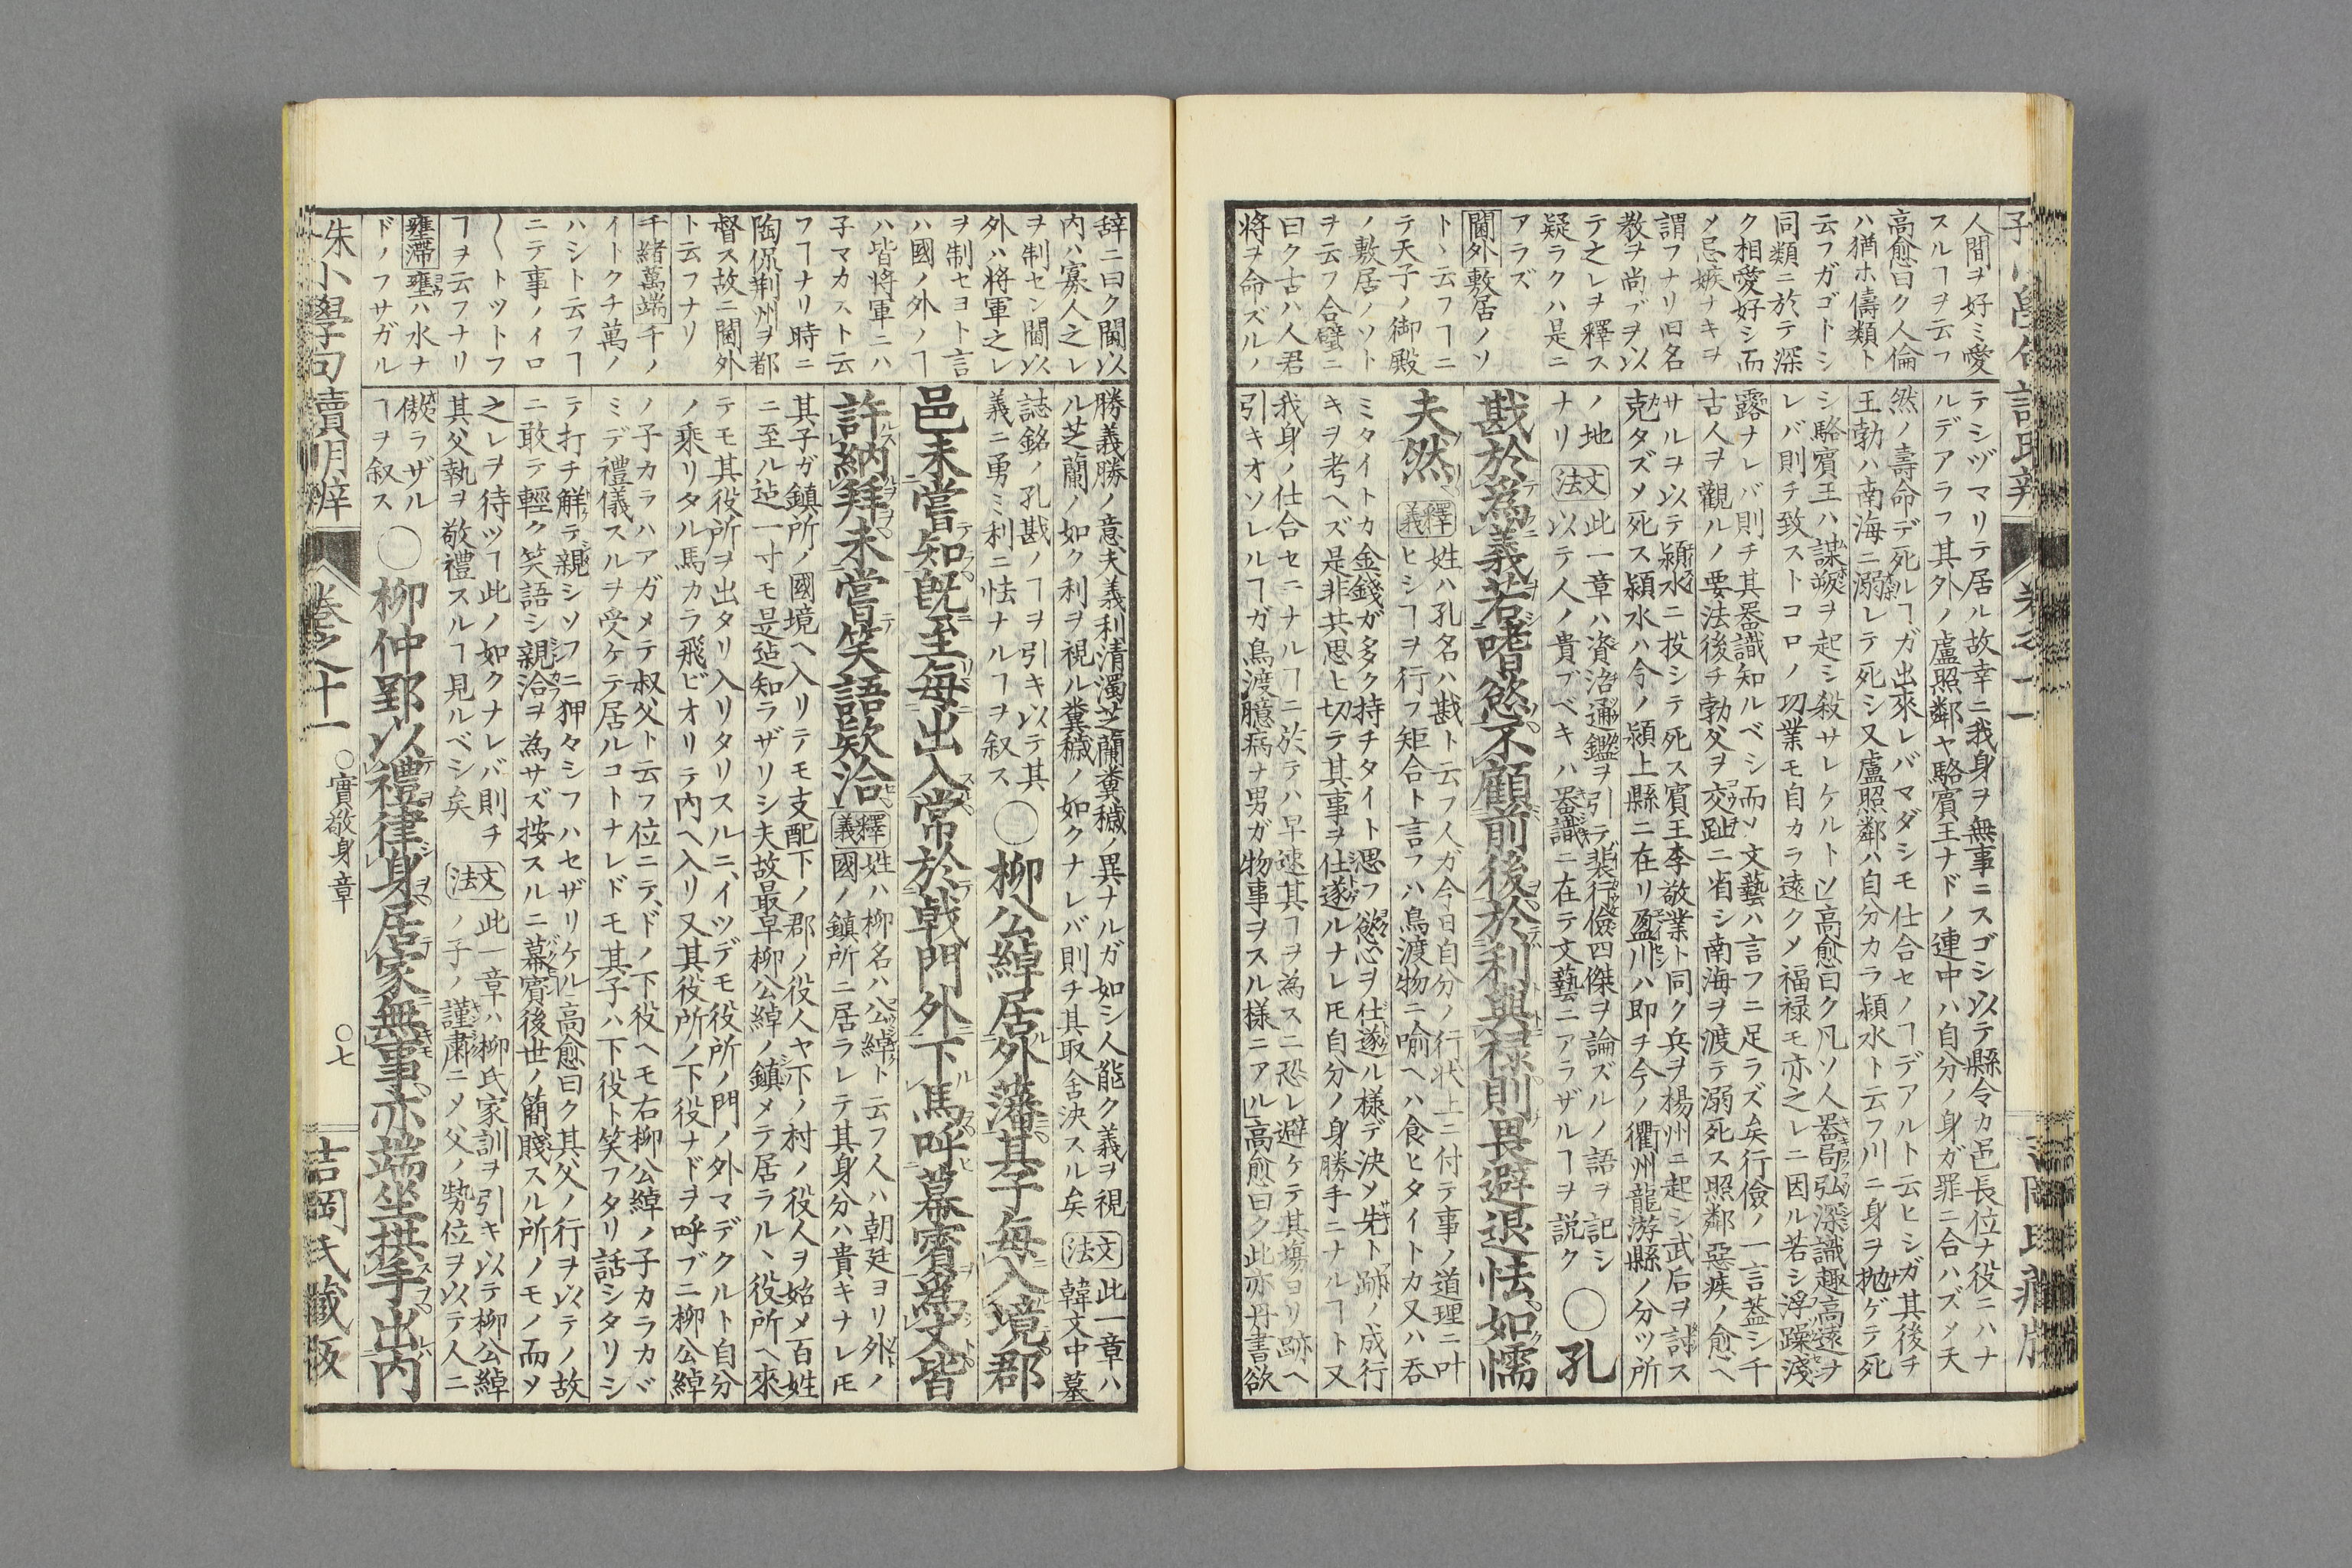 人間ヲ好ミ愛
スルヿヲ云フ
高愈曰ク人倫
ハ猶ホ儔類ト
云フガゴトシ
同類ニ於テ深
ク相愛好シ而
メ忌嫉ナキヲ
謂フナリ旧名
教ヲ尚ブヲ以
テ之レヲ釋ス
疑ラクハ是ニ
アラズ
閫外敷居ノソ
ト丶云フヿニ
テ天子ノ御殿
ノ敷居ノソト
ヲ云フ合璧ニ
曰ク古ハ人君
将ヲ命ズルノ
テシヅマリテ居ル故幸ニ我身ヲ無事ニスゴシ以テ縣令カ邑長位ナ役ニハナ
ルデアラフ其外ノ盧照鄰ヤ駱賓王ナドノ連中ハ自分ノ身ガ罪ニ合ハズメ天
然ノ壽命デ死ルヿガ出來レバマダシモ仕合セノヿデアルト云ヒシガ其後ヲ
王勃ハ南海ニ溺レテ死シ又盧照鄰ハ自分カラ頴水ト云フ川ニ身ヲ抛ゲテ死
シ駱賓王ハ謀叛ヲ起シ殺サレケルト㞢高愈曰ク凡ソ人器局弘深識趣高遠ヲ
レバ則チ致ストコロノ功業モ自カラ遠クメ福禄モ亦之レニ因ル若シ浮躁淺
露ナレバ則チ其器識知ルベシ而ソ文藝ハ言フニ足ラズ矣行儉ノ一言葢シ千
古人ヲ觀ルノ要法後チ勃父ヲ交趾ニ省シ南海ヲ渡テ溺死ス照鄰惡疾ノ愈ヘ
サルヲ以テ頴水ニ投シテ死ス賓王李敬業ト同ク兵ヲ楊州ニ起シ武后ヲ討ス
克タズメ死ス頴水ハ今ノ頴上縣ニ在リ盈川ハ即チ今ノ衢州龍游縣ノ分ツ所
ノ地
ナリ
文法
此一章ハ資治通鑑ヲ引テ裴行儉四傑ヲ論ズルノ語ヲ記シ
以テ人ノ貴ブベキハ器識ニ在テ文藝ニアラザルヿヲ説ク
○孔
戡於為義若嗜慾不顧前後於利與禄則畏避退怯如懦
夫然
釋義
姓ハ孔名ハ戡ト云フ人ガ今日自分ノ行状上ニ付テ事ノ道理ニ叶
ヒシヿヲ行フ矩合ト言フハ鳥渡物ニ喻ヘハ食ヒタイトカ又ハ呑
ミタイトカ金錢ガ多ク持チタイト思フ慾心ヲ仕遂ル様デ決メ先ト跡ノ成行
キヲ考ヘズ是非共思ヒ切テ其事ヲ仕遂ルナレ𪜈自分ノ身勝手ニナルヿト又
我身ノ仕合セニナルヿニ於テハ早速其ヿヲ為スニ恐レ避ケテ其塲ヨリ跡ヘ
引キオソレルヿガ鳥渡臆病ナ男ガ物事ヲスル様ニアル」高愈曰ク此亦丹書欲
辞ニ曰ク閫以
内ハ寡人之レ
ヲ制セン閫以
外ハ将軍之レ
ヲ制セヨト言
ハ國ノ外ノヿ
ハ皆将軍ニハ
子マカストト云
フヿナリ時ニ
陶侃荆州ヲ都
督ス故ニ閫外
ト云フナリ
千緒萬端千ノ
イトクチ萬ノ
ハシト云フヿ
ニテ事ノイロ
〱トツトフ
ヿヲ云フナリ
壅滞壅ハ水ナ
ドノフサガル
勝義勝ノ意夫義利清濁芝蘭糞穢ノ異ナルガ如シ人能ク義ヲ視
ル芝蘭ノ如ク利ヲ視ル糞穢ノ如クナレバ則チ其取舍決スル矣
文法
此一章ハ
韓文中墓
誌銘ノ孔戡ノヿヲ引キ以テ其
義ニ勇ミ利ニ怯ナルヿヲ叙ス
○柳公綽居外藩其子每入境郡
邑未嘗知既至每出入常於戟門外下馬呼幕賓為丈皆
許納拜未嘗笑語欵洽
釋義
姓ハ柳名ハ公綽ト云フ人ハ朝廷ヨリ外ノ
國ノ鎮所ニ居ラレテ其身分ハ貴キナレ𪜈
其子ガ鎮所ノ國境ヘ入リテモ支配下ノ郡ノ役人ヤ下ノ村ノ役人ヲ始メ百姓
ニ至ル迠一寸モ是迠知ラザリシ夫故最早柳公綽ノ鎮メテ居ラル丶役所ヘ來
テモ其役所ヲ出タリ入リタリスルニ、イツデモ役所ノ門ノ外マデクルト自分
ノ乘リタル馬カラ飛ビオリテ内ヘ入リ又其役所ノ下役ナドヲ呼ブニ柳公綽
ノ子カラハアガメテ叔父ト云フ位ニテ、ドノ下役ヘモ右柳公綽ノ子カラカバ
ミデ禮儀スルヲ受ケテ居ルコトナレドモ其子ハ下役ト笑フタリ話シタリシ
テ打チ解テ親シソフニ狎々シフハセザリケル」高愈曰ク其父ノ行ヲ以テノ故
ニ敢テ輕ク笑語シ親洽ヲ為サズ按スルニ幕賓後世ノ簡賤スル所ノモノ而メ
之レヲ待ツヿ此ノ如クナレバ則チ
其父執ヲ敬禮スルヿ見ルベシ矣
文法
此一章ハ柳氏家訓ヲ引キ以テ柳公綽
ノ子ノ謹粛ニメ父ノ勢位ヲ以テ人ニ
傲ラザル
ヿヲ叙ス
○柳仲郢以禮律身居家無事亦端坐拱手出内
朱小學句讀明辨
巻之十一
○實敬身章
○七
吉岡氏藏版